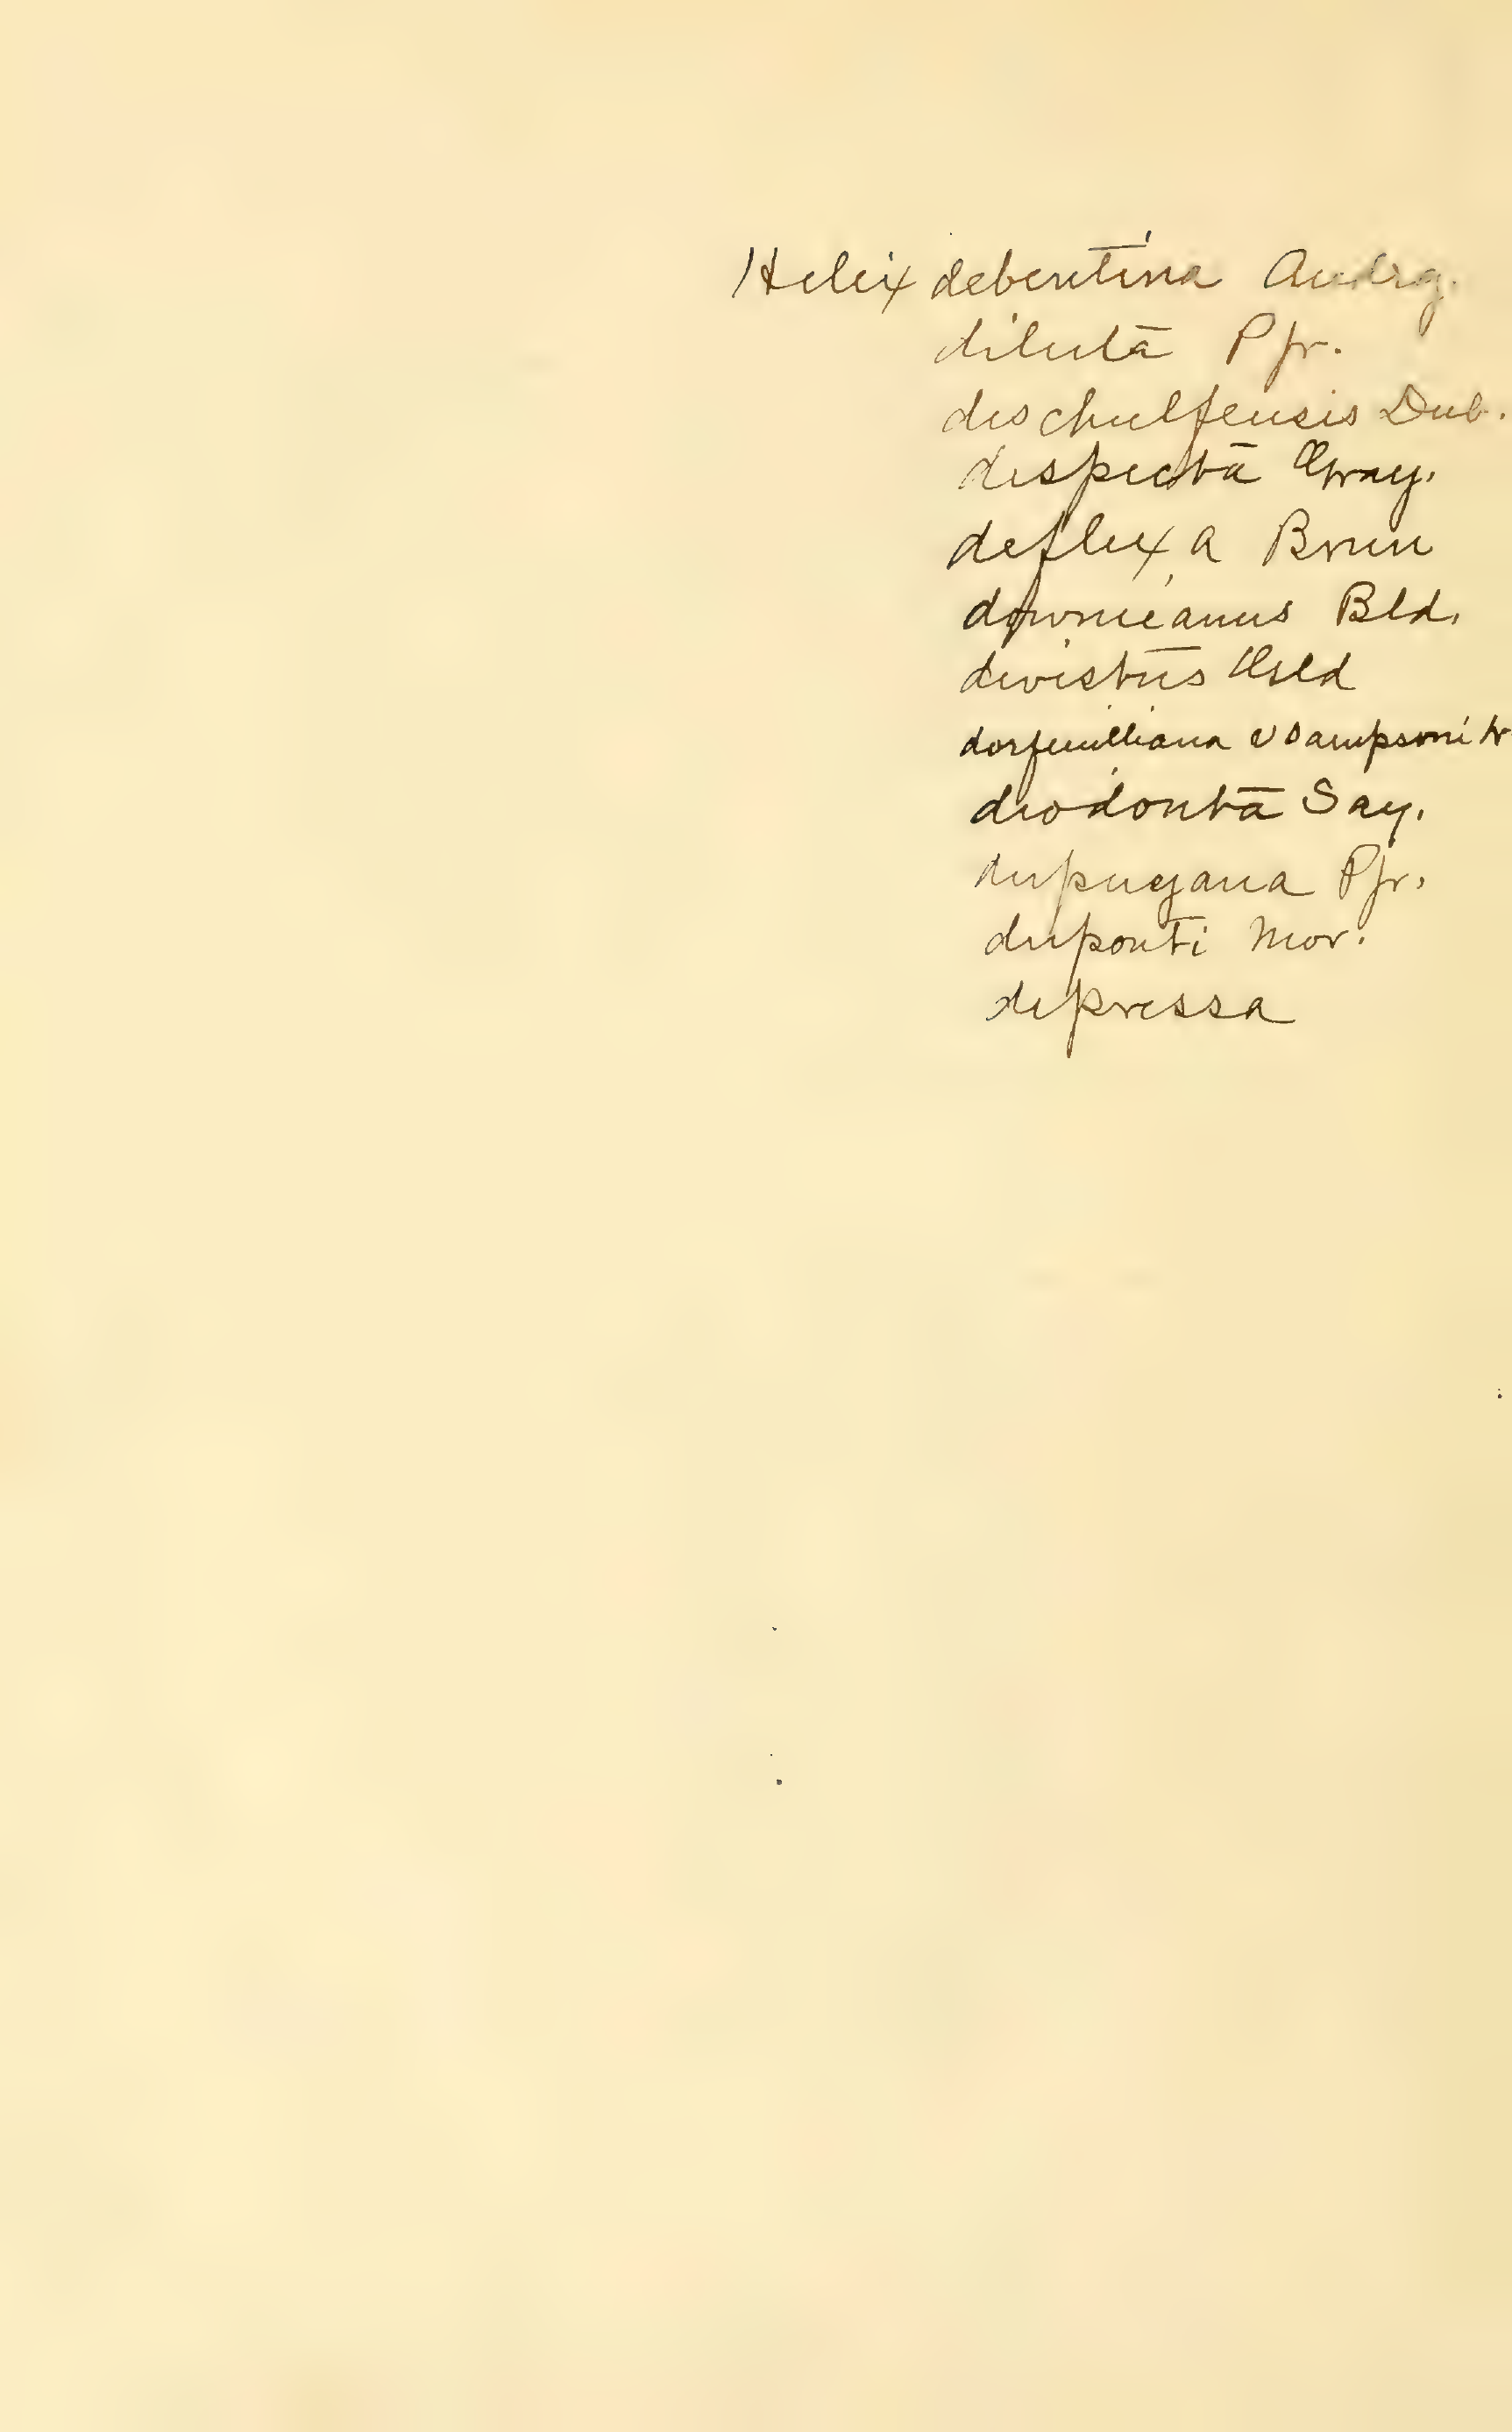 Helix debentina Andrg.
diluta Pfr.
deschulfensis Dub.
despecta Gray.
deflexa Brun
downieanus Bld.
devistus Gld
dorfeuilliana v Sampsoni
diodonta Say.
dupuyana Pfr.
duponti Mor.
depressa